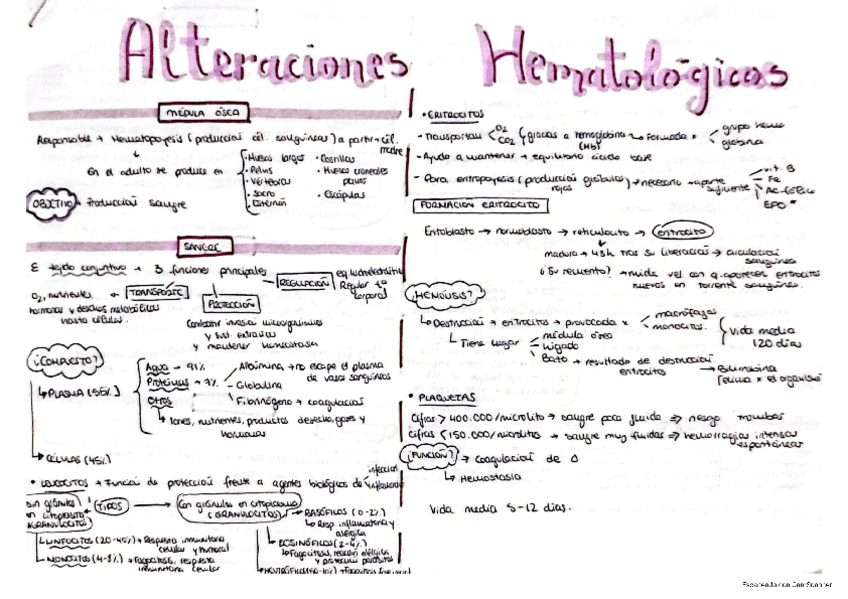 Alteraciones Hematológicas
MÉDULA ÓSEA
Responsable → Hematopoyesis (producción cél. sanguíneas) a partir → cél. madre
En el adulto se produce en
• Huesos largos
• Pelvis
• Vértebras
• Sacro
• Esternón
• Costillas
• Huesos craneales planos
• Escápulas
OBJETIVO → Producción sangre
SANGRE
Es tejido conjuntivo → 3 funciones principales
REGULACIÓN
Regular tª corporal
O2, nutrientes, hormonas y desechos metabólicos hasta células.
← TRANSPORTE
PROTECCIÓN
Combatir invasión microorganismos
y sust. extrañas
y mantener homeostasia
¿COMPUESTO?
PLASMA (55%)
Agua → 91%
Proteínas → 7%
Albúmina → no escape el plasma de vasos sanguíneos
Globulina
Fibrinógeno → coagulación
Otros
Iones, nutrientes, productos desecho, gases y hormonas
CÉLULAS (45%)
• LEUCOCITOS → Función de protección frente a agentes biológicos de infección
sin gránulos en citoplasma
AGRANULOCITOS
TIPOS
Con gránulos en citoplasma (GRANULOCITOS)
LINFOCITOS (20-40%) → Respuesta inmunitaria celular y humoral
MONOCITOS (4-8%) → Fagocitosis, respuesta inmunitaria celular
BASÓFILOS (0-2%)
Resp. inflamatoria y alérgica
EOSINÓFILOS (2-4%)
Fagocitosis, reacción alérgica y protección parásitos
NEUTRÓFILOS
• ERITROCITOS
- Transportan O2 CO2 gracias a hemoglobina (Hb) → Formada x grupo hemo globina
- Ayuda a mantener → equilibrio ácido base
- Para eritropoyesis (producción glóbulos rojos) → necesario → aporte suficiente
vit. B
Fe
Ac. Fólico
EPO *
FORMACIÓN ERITROCITO
→ normoblasto → reticulocito → eritrocito
madura → 48h tras su liberación → circulación sanguínea
nuevos en torrente sanguíneo.
¿HEMÓLISIS?
Destrucción → eritrocito → provocada x macrófagos monocitos.
Vida media 120 días
Tiene lugar
médula ósea
hígado
Bazo → resultado de destrucción eritrocito → Bilirrubina
• PLAQUETAS
Cifras > 400.000/microlito → sangre poco fluida ⇒ riesgo trombos
Cifras < 150.000/microlitos → sangre muy fluidas ⇒ hemorragias intensas espontáneas
¿FUNCIÓN? → Coagulación de Δ
Hemostasia
Vida media 5-12 días.
Escaneado con CamScanner